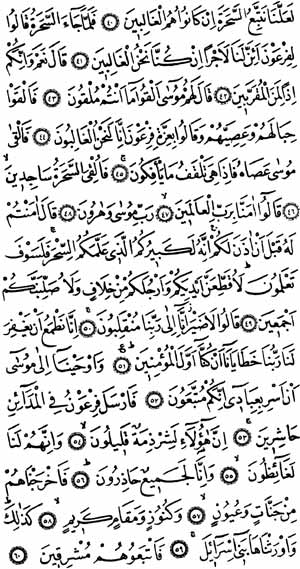 لَعَلَّنَا نَتَّبِعُ السَّحَرَةَ اِنْ كَانُوا هُمُ الْغَالِبٖينَ ﴿٤٠﴾ فَلَمَّا جَٓاءَ السَّحَرَةُ قَالُوا
لِفِرْعَوْنَ اَئِنَّ لَنَا لَاَجْرًا اِنْ كُنَّا نَحْنُ الْغَالِبٖينَ ﴿٤١﴾ قَالَ نَعَمْ وَاِنَّكُمْ
اِذًا لَمِنَ الْمُقَرَّبٖينَ ﴿٤٢﴾ قَالَ لَهُمْ مُوسٰٓى اَلْقُوا مَٓا اَنْتُمْ مُلْقُونَ ﴿٤٣﴾ فَاَلْقَوْا
حِبَالَهُمْ وَعِصِيَّهُمْ وَقَالُوا بِعِزَّةِ فِرْعَوْنَ اِنَّا لَنَحْنُ الْغَالِبُونَ ﴿٤٤﴾ فَاَلْقٰى
مُوسٰى عَصَاهُ فَاِذَا هِيَ تَلْقَفُ مَا يَاْفِكُونَ ﴿٤٥﴾ فَاُلْقِيَ السَّحَرَةُ سَاجِدٖينَ
﴿٤٦﴾ قَالُٓوا اٰمَنَّا بِرَبِّ الْعَالَمٖينَ ﴿٤٧﴾ رَبِّ مُوسٰى وَهٰرُونَ ﴿٤٨﴾ قَالَ اٰمَنْتُمْ
لَهُ قَبْلَ اَنْ اٰذَنَ لَكُمْ اِنَّهُ لَكَبٖيرُكُمُ الَّذٖى عَلَّمَكُمُ السِّحْرَ فَلَسَوْفَ
تَعْلَمُونَ لَاُقَطِّعَنَّ اَيْدِيَكُمْ وَاَرْجُلَكُمْ مِنْ خِلَافٍ وَلَاُصَلِّبَنَّكُمْ
اَجْمَعٖينَ ﴿٤٩﴾ قَالُوا لَا ضَيْرَ اِنَّٓا اِلٰى رَبِّنَا مُنْقَلِبُونَ ﴿٥٠﴾ اِنَّا نَطْمَعُ اَنْ يَغْفِرَ
لَنَا رَبُّنَا خَطَايَانَٓا اَنْ كُنَّٓا اَوَّلَ الْمُؤْمِنٖينَ ﴿٥١﴾ وَاَوْحَيْنَٓا اِلٰى مُوسٰٓى
اَنْ اَسْرِ بِعِبَادٖٓى اِنَّكُمْ مُتَّبَعُونَ ﴿٥٢﴾ فَاَرْسَلَ فِرْعَوْنُ فِى الْمَدَٓائِنِ
حَاشِرٖينَ ﴿٥٣﴾ اِنَّ هٰٓؤُلَٓاءِ لَشِرْذِمَةٌ قَلٖيلُونَ ﴿٥٤﴾ وَاِنَّهُمْ لَنَا
لَغَٓائِظُونَ ﴿٥٥﴾ وَاِنَّا لَجَمٖيعٌ حَاذِرُونَ ﴿٥٦﴾ فَاَخْرَجْنَاهُمْ
مِنْ جَنَّاتٍ وَعُيُونٍ ﴿٥٧﴾ وَكُنُوزٍ وَمَقَامٍ كَرٖيمٍ ﴿٥٨﴾ كَذٰلِكَ
وَاَوْرَثْنَاهَا بَنٖٓى اِسْرَٓائٖلَ ﴿٥٩﴾ فَاَتْبَعُوهُمْ مُشْرِقٖينَ ﴿٦٠﴾